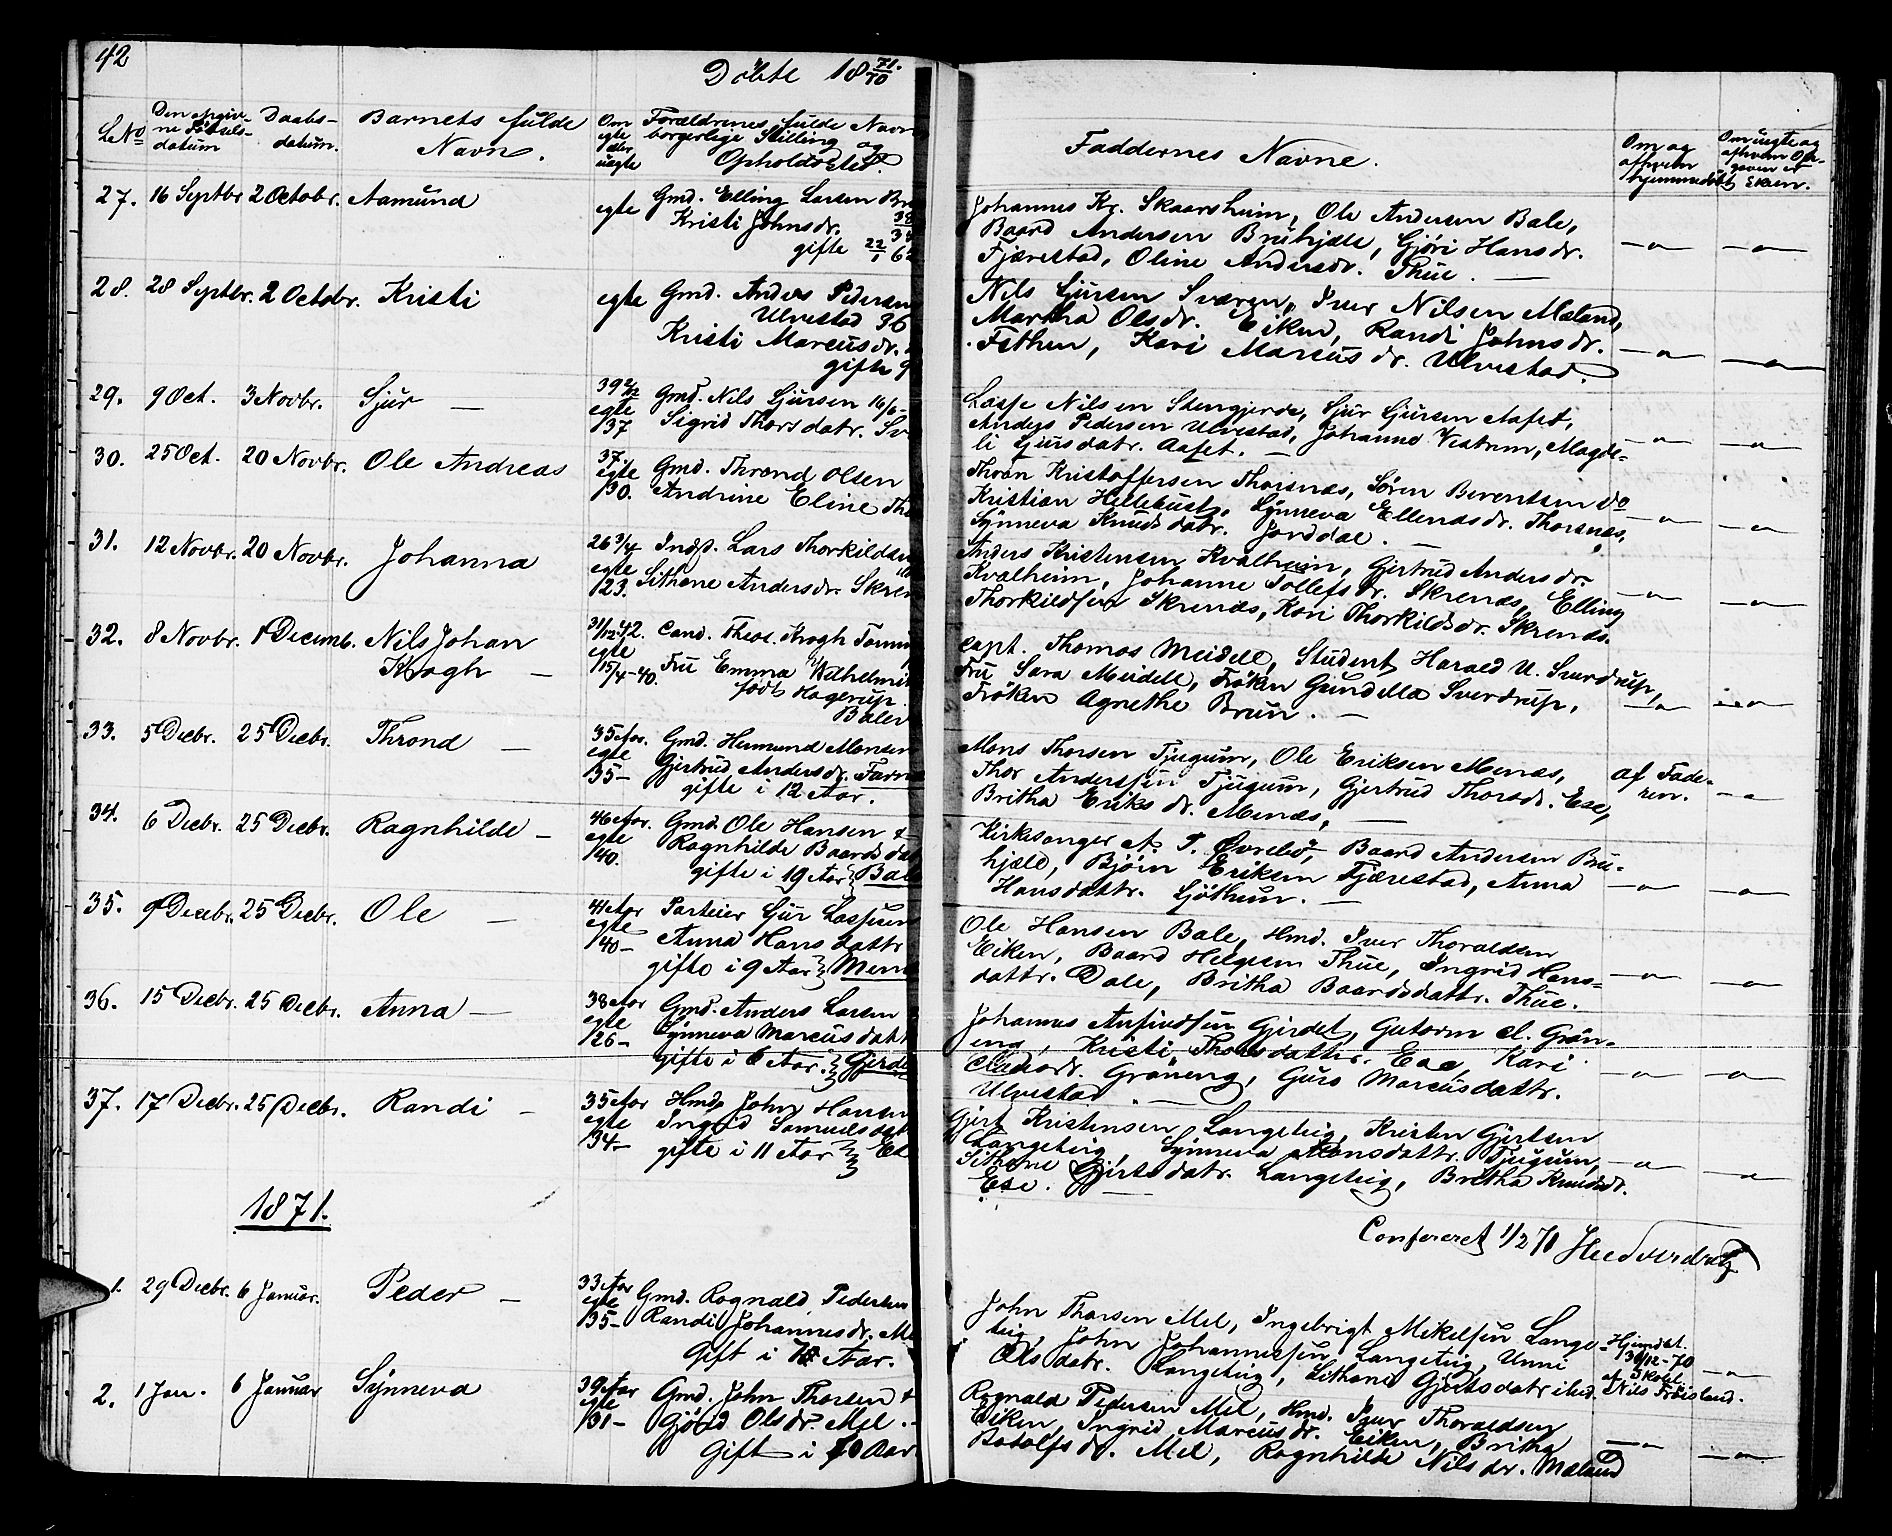 42
Döbte 18 71/70
LNo
Den opgivne Födselsdatum
Daabsdatum.
Barnets fulde Navn.
Om egte eller uegte
Forældrenes fulde Navn borgerlige Stilling og Opholdssted.
Faddernes Navne.
Om og afhvem hjemmedöbt
27. 16 Septbr 2 Octobr. Aamund
egte Gmd. Elling Larsen
Kristi Johnsdr.
gifte 22/1
Johannes Kr. Skaarsheim, Ole Andersen Bale,
Baard Andersen Bruhjæld, Gjöri Hansdr.
Fjærestad, Oline Andersdr. Thue. —
28. 28 Septbr. 2 Octobr. Kristi
egte Gmd. Anders Pedersen
Ulvestad 36
Kristi Marcusdr.
gifte 9
Nils Sjursen Sværen, Iver Nilsen Mæland,
Martha Olsdr. Eiken, Randi Johnsdr.
Fethen, Kari Marcusdr. Ulvestad.
29. 9 Oct. 3 Novbr. Sjur —
39 2/2 egte /37
Gmd. Nils Sjursen 16/6-
Sigrid Thorsdatr. Sv
Lasse Nilsen Stengjerde, Sjur Sjursen Aafet,
Anders Pedersen Ulvestad, Johanne Vestrem, Magde-
li Sjursdatr. Aafet. —
30. 25 Oct. 20 Novbr. Ole Andreas
37. egte /30.
Gmd. Thrond Olsen
Andrine Eline Tho
Thron Kristoffersen Thorsnæs, Sören Berentsen do
Kristian Hellebust, Synneva Ellendsdr. Thorsnæs,
Synneva Knudsdatr. Jorddal. —
31. 12 Novbr. 20 Novbr. Johanna
26 3/4 egte /23.
Indst. Lars Thorkildsen
Sithene Andersdr. Skren
Anders Kristensen Kvalheim, Gjertrud Andersdr.
Kvalheim, Johanne Tollefsdr. Skrenæs, Elling
Thorkildsen Skrenæs, Kari Thorkildsdr. Skrenæs.
32. 8 Novbr. 1 Decemb. Nils Johan
Krogh —
31/12 42. egte 15/4-40.
Cand. Theol. Krogh Tonni
Fru Emma Wilhelmin
födt Hagerup.
Bale
Capt. Thomas Meidell, Student Harald U. Sverdrup,
Fru Sara Meidell, Fröken Gundella Sverdrup,
Fröken Agnethe Brun. —
33. 5 Decbr. 25 Decbr. Thrond —
35 Aar. egte /35—
Gmd. Hermund Monsen
Gjertrud Andersdr. Farn
gifte i 12 Aar.
Mons Thorsen Tjugum, Ole Eriksen Menæs,
Thor Anderssen Tjugum, Gjertrud Thorsdr. Ese,
Britha Eriksdr. Menæs, —
af Fade-
ren.
34. 6 Decbr. 25 Decbr. Ragnhilde —
46 Aar. egte /40.
Gmd. Ole Hansen &
Ragnhilde Baardsdat
gifte i 19 Aar Bale
Kirkesanger A. T. Övrebö, Baard Andersen Bru-
hjæld, Björn Eriksen Fjærestad, Anna
Hansdattr. Sjöthun. —
35. 9 Decbr. 25 Decbr. Ole —
41 Aar egte /40—
Parteier Sjur Lassesen
Anna Hansdattr
gifte i 9 Aar Men
Ole Hansen Bale, Hmd. Iver Thoraldsen
Eiken, Baard Helgesen Thue, Ingrid Hans-
dattr. Dale, Britha Baardsdattr. Thue.
36. 15 Decbr. 25 Decbr. Anna —
38 Aar egte /26—
Gmd. Anders Larsen
Synneva Marcusdatt
gifte i 6 Aar. Gjerde
Johannes Anfindsen Gjerdet, Gutorm A. Grön-
eng, Kristi Thorsdattr. Ese, Kari
Gröneng, Guro Marcusdattr.
Ulvestad. —
37. 17 Decbr. 25 Decbr. Randi —
35 Aar egte /34—
Hmd. John Hansen
Ingrid Samuelsdat
gifte i 11 Aar Es
Gjert Kristensen Langeteig, Kristen Gjertsen
Langeteig, Synneva Monsdattr. Tjugum,
Sithene Gjertsdatr. Langeteig, Britha Knudsdr.
Ese. —
Confereret 1/2 71
1871.
1. 29 Decbr. 6 Januar. Peder —
33 Aar egte /35—
Gmd. Rognald Pedersen
Randi Johannesdr. Me
Gift i Aar.
John Thorsen Mel, Ingebrigt Mikelsen Lange-
teig, John Johannessen Langeteig, Unni
Olsdatr. Langeteig, Sithene Gjertsdatr ibid.
Hjemdöbt.
30/12-70
af Skolel.
Nils Fröisland.
2. 1 Jan. 6 Januar Synneva
39 Aar egte /31—
Gmd. John Thorsen &
Gjörid Olsdr. Mel.
Gift i 10 Aar.
Rognald Pedersen Mel, Hmd. Iver Thoraldsen
Eiken, Ingrid Marcusdr. Eiken, Britha
Botolfsdr. Mel, Ragnhilde Nilsdr. Mæland